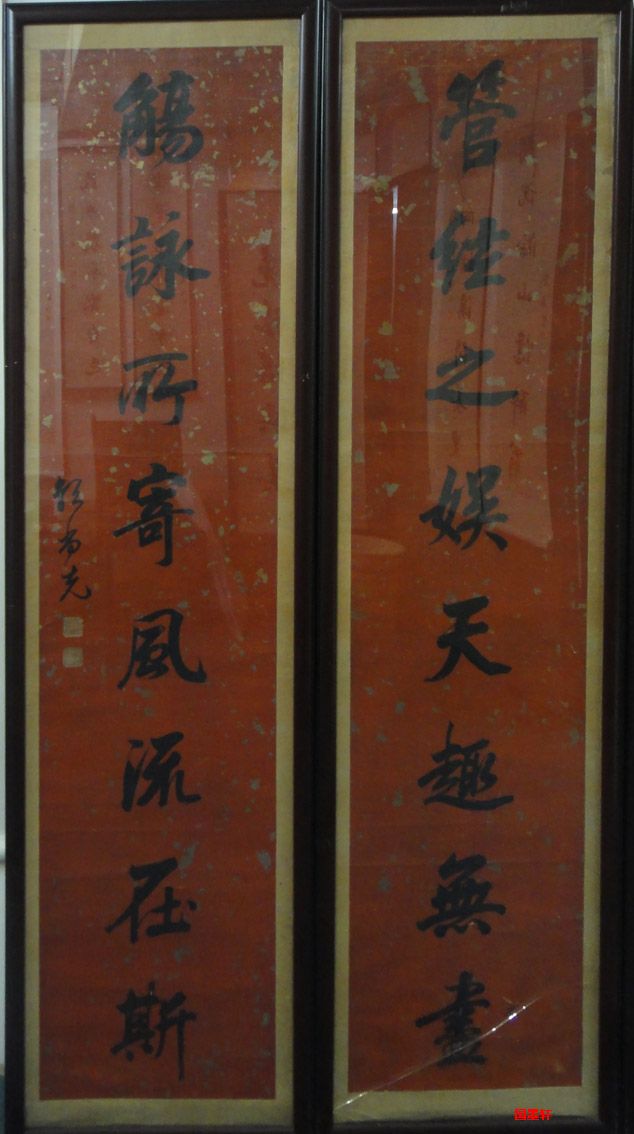 管絃之娛天趣無盡
觴詠所寄風流在斯